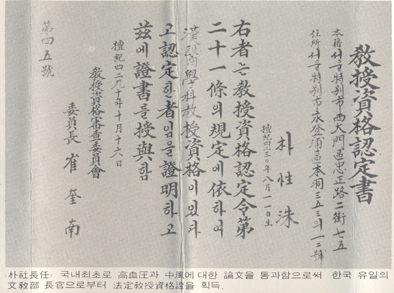 教授資格認定書
本籍 서울特別市西大門區忠正路二街七五
住所 서울特別市永登浦區本洞三五三의一二號
朴性洙
檀紀四二五○年八月一一日生
右者는敎授資格認定令第
二十一條의規定에依하여
敎授資格이있다
고認定한者임을證明하고
玆에證書를授與함
檀紀四二九十年十月十六日
敎授資格審査委員會
委員長 崔奎南
第四五號
朴社長任: 국내최초로 高血圧과 中風에대한 論文을 통과함으로써 한국 유일의
文敎部 長官으로부터 法定敎授資格證을 획득.